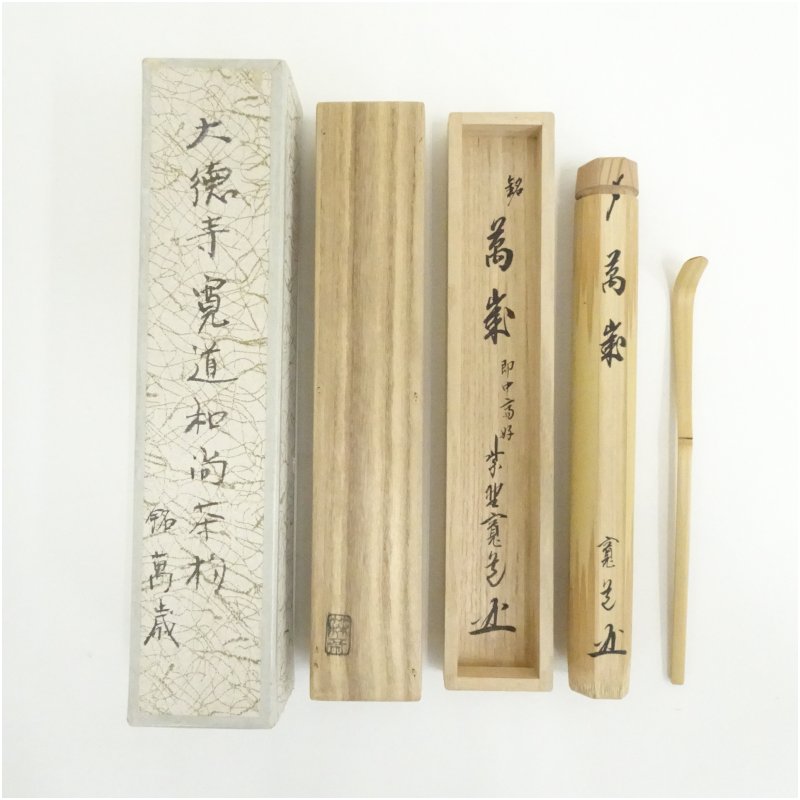 大德寺寛道和尚茶杓
銘萬歳
銘
萬歳
即中斎好
紫野寛道
〆
萬歳
寛道